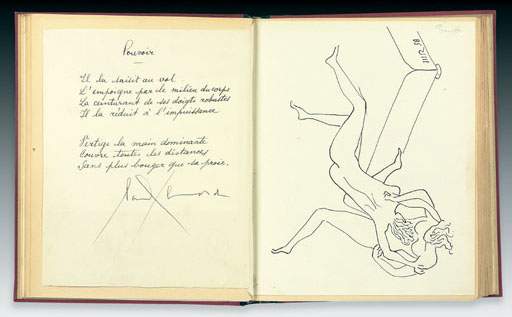 Pouvoir
Il la saisit au vol
L'empoigne par le milieu du corps
La ceinturant de ses doigts robustes
Il la réduit à l'impuissance
Vertige la main dominante
Couvre toutes les distances
Sans plus bouger que sa proie.
Paul Eluard